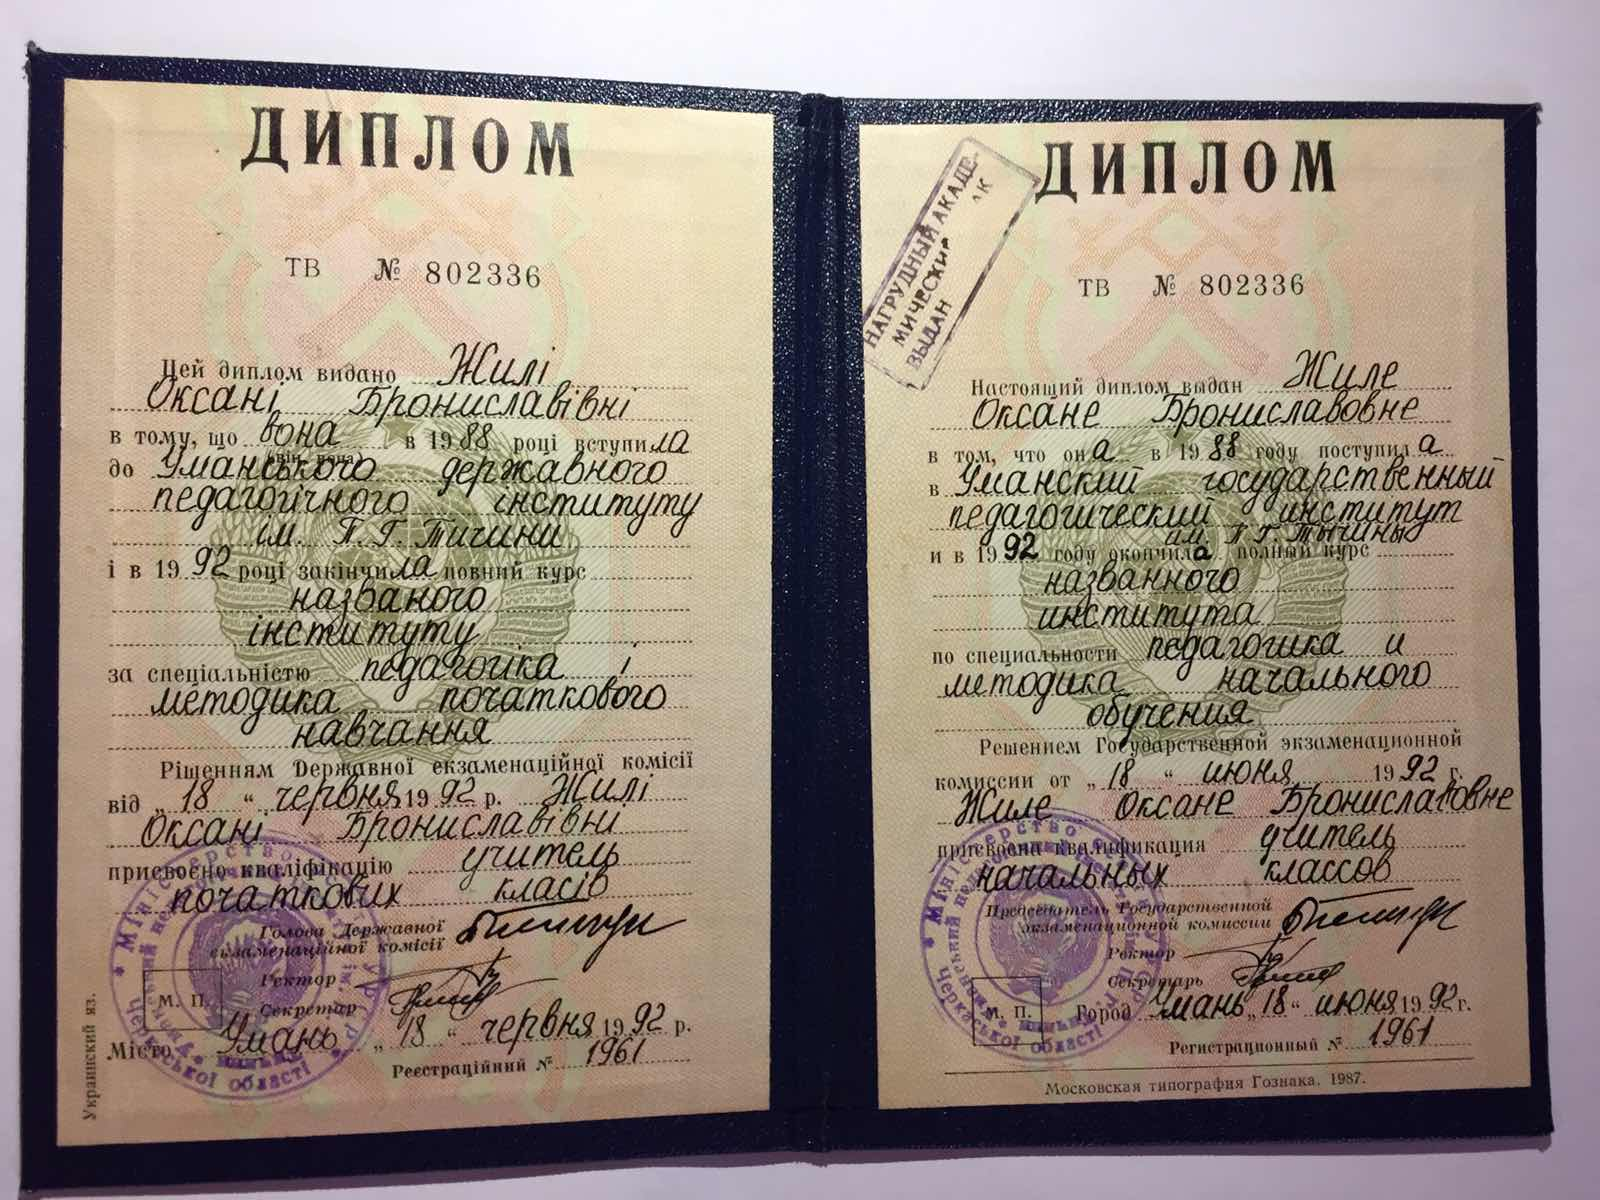 ДИПЛОМ
ТВ № 802336
Цей диплом видано Жилі
Оксані Брониславівні
в тому, що вона в 1988 році вступила
(він, вона)
до Уманського державного
педагогічного інституту
ім. П. Г. Тичини
і в 1992 році закінчила повний курс
названого
інституту
за спеціальністю педагогіка і
методика початкового
навчання
Рішенням Державної екзаменаційної комісії
від „18“ червня 1992 р. Жилі
Оксані Брониславівні
присвоєно кваліфікацію учитель
початкових класів
Голова Державної
екзаменаційної комісії
Ректор
Секретар
М. П.
Місто Умань „18“ червня 1992 р.
Реєстраційний № 1961
Украинский яз.
Міністерство
Черкаської області
ДИПЛОМ
НАГРУДНЫЙ АКАДЕ-
МИЧЕСКИЙ
ВЫДАН
ТВ № 802336
Настоящий диплом выдан Жиле
Оксане Брониславовне
в том, что она в 1988 году поступила
в Уманский государственный
педагогический институт
им. П. Г. Тычины
и в 1992 году окончила полный курс
названного
института
по специальности педагогика и
методика начального
обучения
Решением Государственной экзаменационной
комиссии от „18“ июня 1992 г.
Жиле Оксане Брониславовне
присвоена квалификация учитель
начальных классов
Председатель Государственной
экзаменационной комиссии
Ректор
Секретарь
М. П.
Город Умань „18“ июня 1992 г.
Регистрационный № 1961
Міністерство
Черкаської області
Московская типография Гознака. 1987.